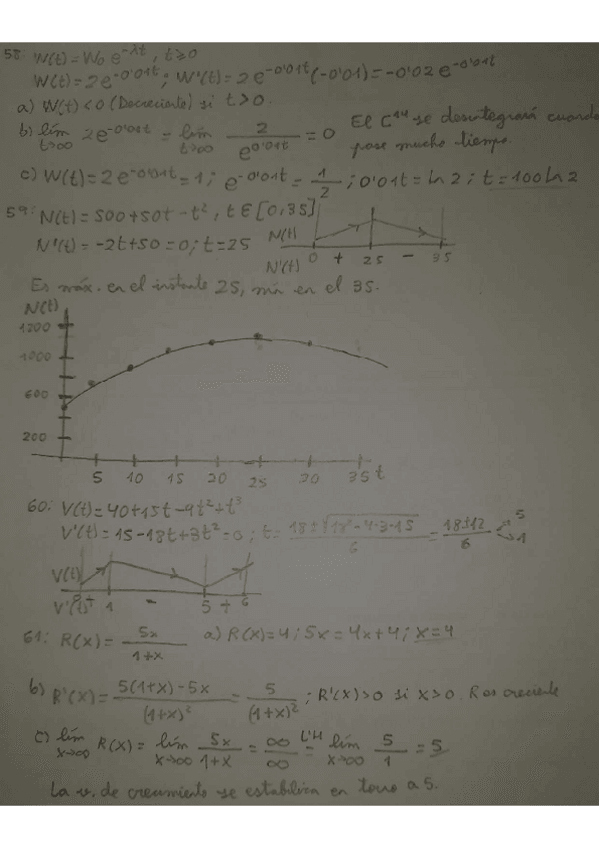 58: W(t) = W₀ e^-λt, t≥0
W(t) = 2e^-0'01t ; W'(t) = 2e^-0'01t (-0'01) = -0'02 e^-0'01t
a) W(t) < 0 (Decreciente) si t > 0.
b) lim t→∞ 2e^-0'01t = lim t→∞ 2/e^0'01t = 0 El C¹⁴ se desintegrará cuando
pase mucho tiempo.
c) W(t) = 2e^-0'01t = 1 ; e^-0'01t = 1/2 ; 0'01t = ln 2 ; t = 100 ln 2
59: N(t) = 500+50t-t², t∈[0,35]
N'(t) = -2t+50 = 0; t=25
N(t)
N'(t) 0 + 25 - 35
Es máx. en el instante 25, mín en el 35.
N(t)
1200
1000
600
200
5 10 15 20 25 30 35 t
60: V(t) = 40+15t-9t²+t³
V'(t) = 15-18t+3t² = 0 ; t = (18±√(18²-4·3·15))/6 = (18±12)/6 5
1
V(t)
V'(t) 0 + 1 - 5 + 6
61: R(x) = 5x/(1+x) a) R(x)=4 ; 5x = 4x+4 ; x=4
b) R'(x) = (5(1+x)-5x)/(1+x)² = 5/(1+x)² ; R'(x)>0 si x>0. R es creciente
c) lim x→∞ R(x) = lim x→∞ 5x/(1+x) = ∞/∞ = L'H lim x→∞ 5/1 = 5
La v. de crecimiento se estabiliza en torno a 5.